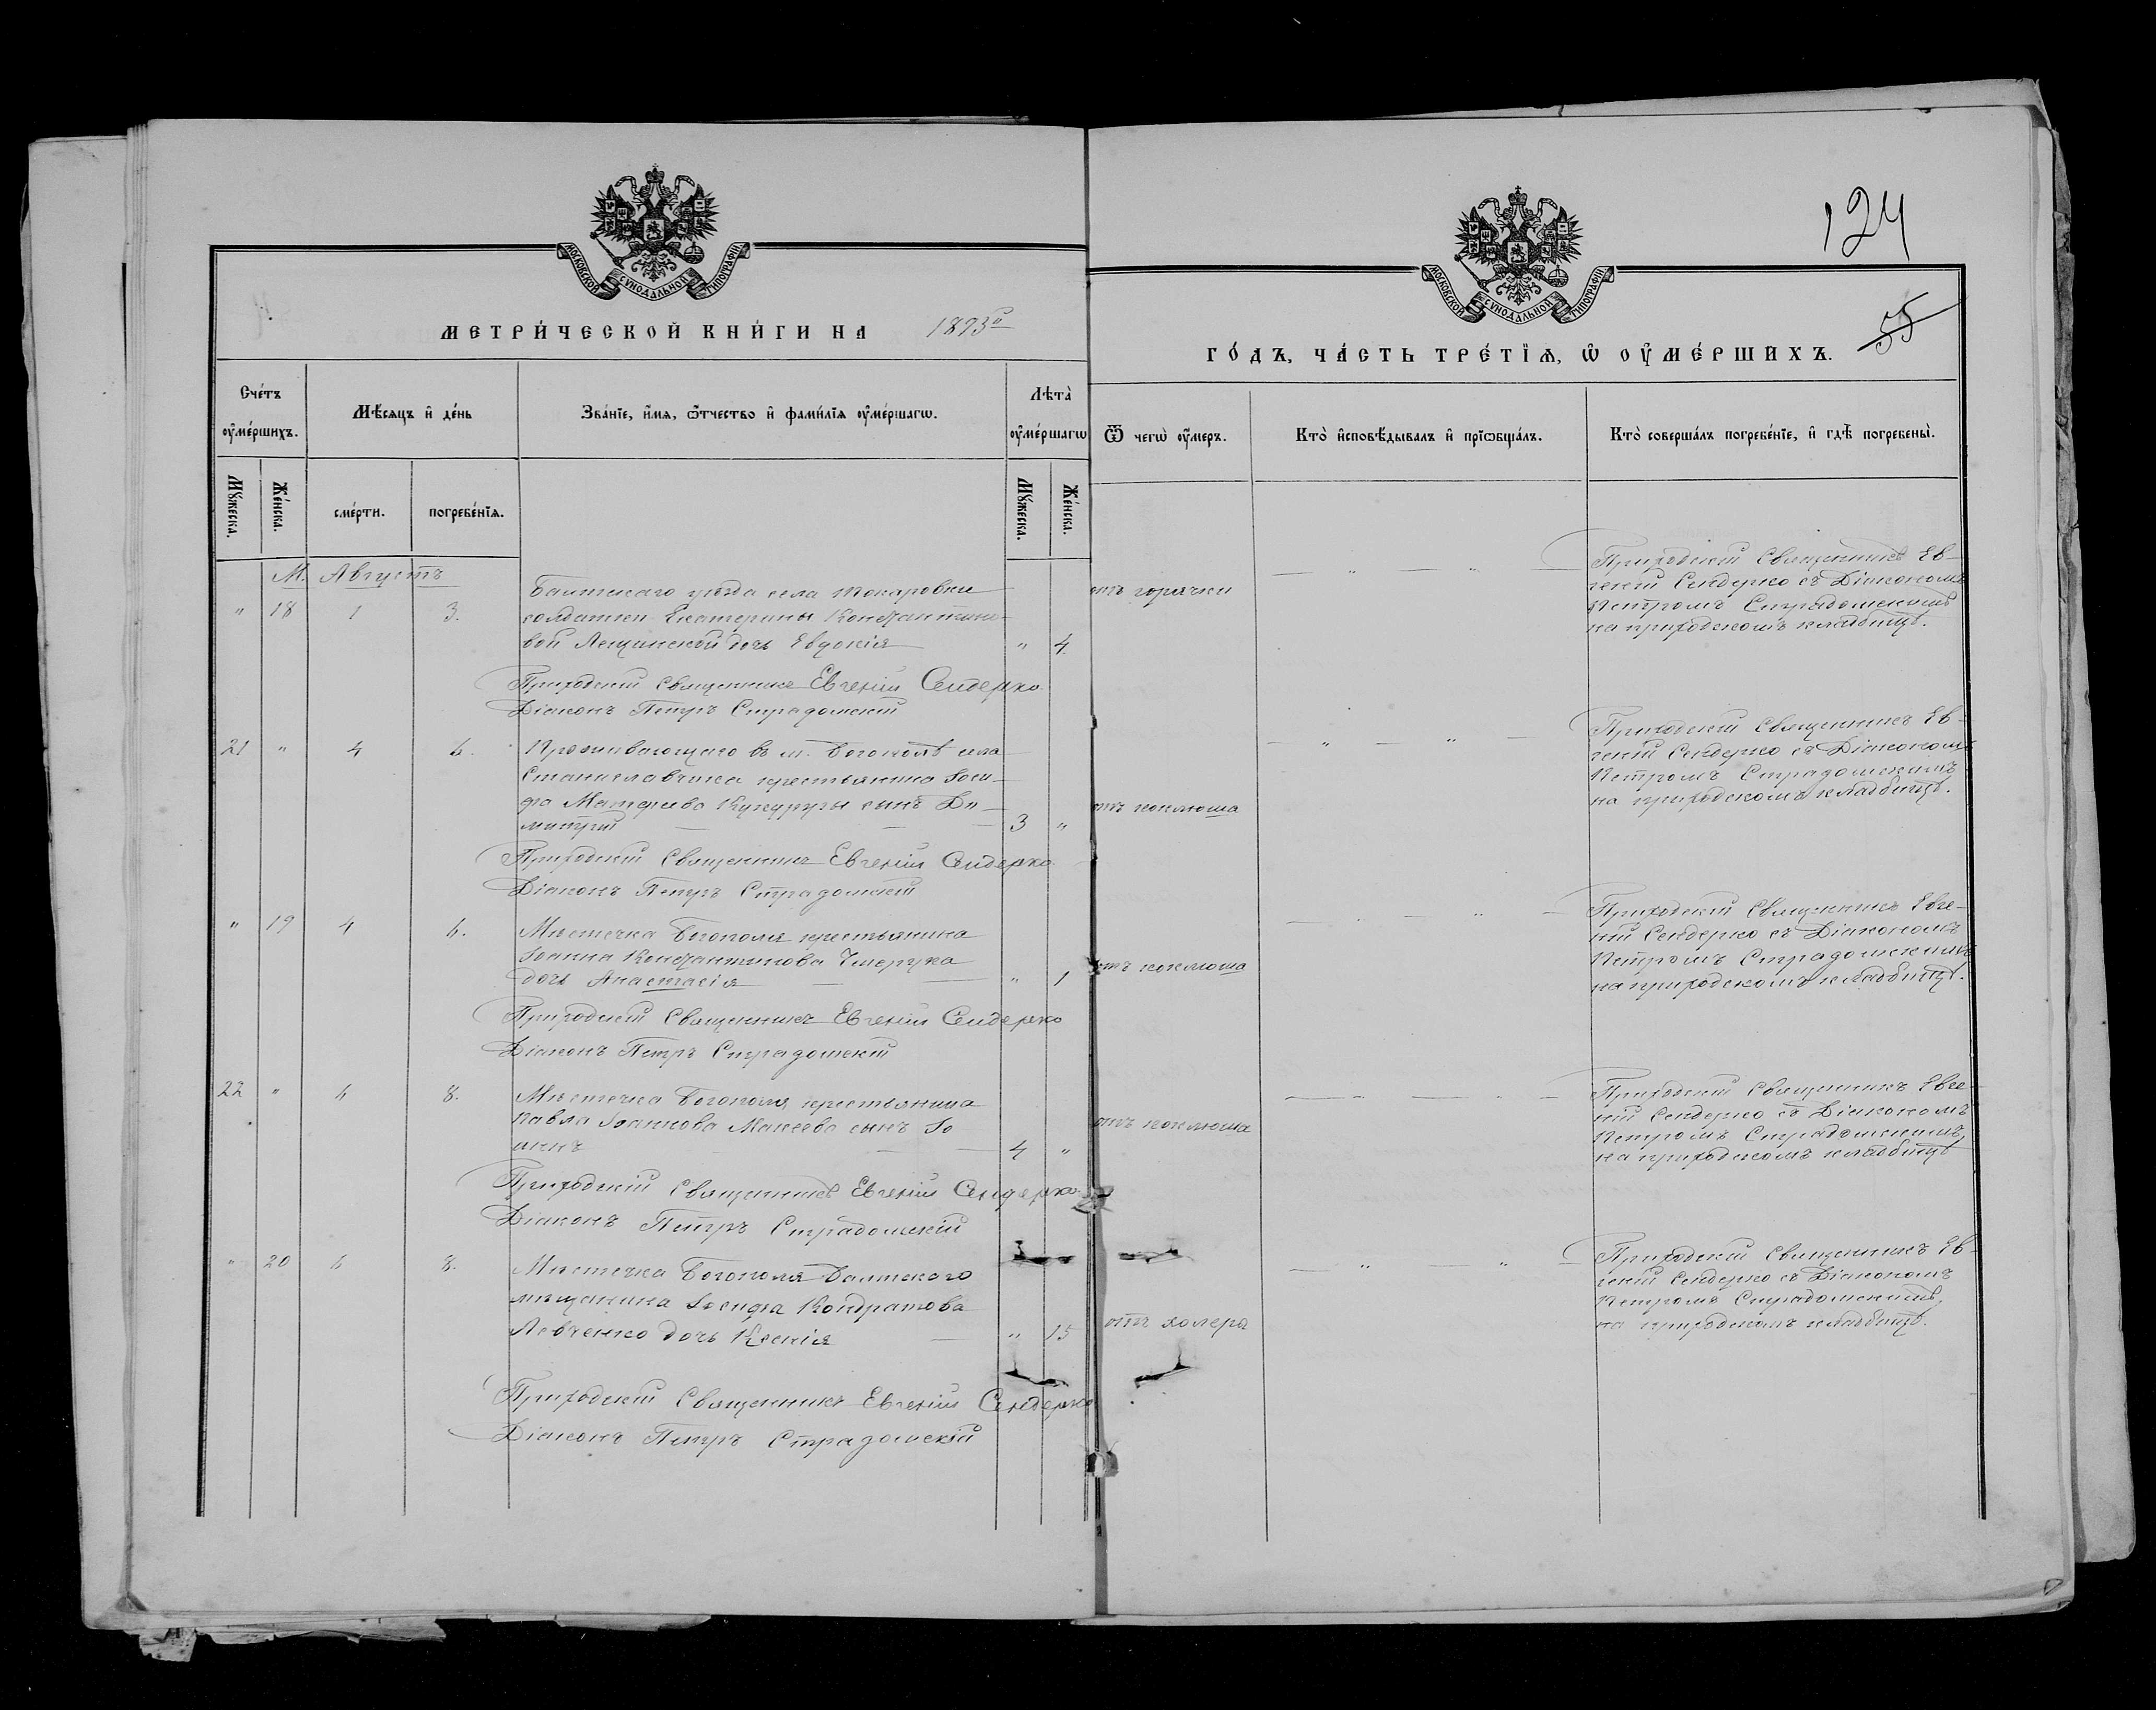 124
55
МОСКОВСКОЙ СѴНОДАЛЬНОЙ ТИПОГРАФІИ
МОСКОВСКОЙ СѴНОДАЛЬНОЙ ТИПОГРАФІИ
МЕТРИ́ЧЕСКОЙ КНИ́ГИ НА 1893й
ГО́ДЪ, ЧА́СТЬ ТРЕ́ТЇѦ, Ѡ҆ ОУ҆МЕ́РШИХЪ.
Сче́тъ оу҆ме́ршихъ.
Мꙋ́жеска.
Же́нска.
Мѣ́сѧцъ и҆ де́нь
сме́рти.
погребе́нїѧ.
Зва́нїе, и҆́мѧ, ѻ҆́тчество и҆ фами́лїѧ оу҆ме́ршагѡ.
Лѣта̀ оу҆ме́ршагѡ
Мꙋ́жеска.
Же́нска.
Ѿ чегѡ̀ оу҆́меръ.
Кто̀ и҆сповѣ́дывалъ и҆ прїѡбща́лъ.
Кто̀ соверша́лъ погребе́нїе, и҆ гдѣ̀ погребены̀.
М. Августъ
" 18 1 3.
Балтскаго уѣзда села Токаровки
солдатки Екатерины Константино-
вой Лещинской дочь Евдокія " 4.
отъ горячки
Приходскій Священникъ Ев-
геній Сендерко съ Діакономъ
Петромъ Страдомскимъ
на приходскомъ кладбищѣ.
Приходскій Священникъ Евгеній Сендерко.
Діаконъ Петръ Страдомскій
21 " 4 6.
Проживающаго въ м. Богополѣ села
Станиславчика крестьянина Іоси-
фа Матфеева Кукурузы сынъ Ди-
митрій 3 "
отъ коклюша
Приходскій Священникъ Ев-
геній Сендерко съ Діакономъ
Петромъ Страдомскимъ
на приходскомъ кладбищѣ.
Приходскій Священникъ Евгеній Сендерко.
Діаконъ Петръ Страдомскій
" 19 4 6.
Мѣстечка Богополя крестьянина
Іоанна Константинова
дочь Анастасія " 1
отъ коклюша
Приходскій Священникъ Евге-
ній Сендерко съ Діакономъ
Петромъ Страдомскимъ
на приходскомъ кладбищѣ.
Приходскій Священникъ Евгеній Сендерко
Діаконъ Петръ Страдомскій
22 " 6 8.
Мѣстечка Богополя крестьянина
Павла Іоаннова Макеева сынъ
4 "
отъ коклюша
Приходскій Священникъ Евге-
ній Сендерко съ Діакономъ
Петромъ Страдомскимъ
на приходскомъ кладбищѣ
Приходскій Священникъ Евгеній Сендерко.
Діаконъ Петръ Страдомскій
" 20 6 8.
Мѣстечка Богополя Балтскаго
мѣщанина Іосифа Кондратова
Левченко дочь Ксенія " 15
отъ холеры
Приходскій Священникъ Ев-
геній Сендерко съ Діакономъ
Петромъ Страдомскимъ
на приходскомъ кладбищѣ.
Приходскій Священникъ Евгеній Сендерко
Діаконъ Петръ Страдомскій